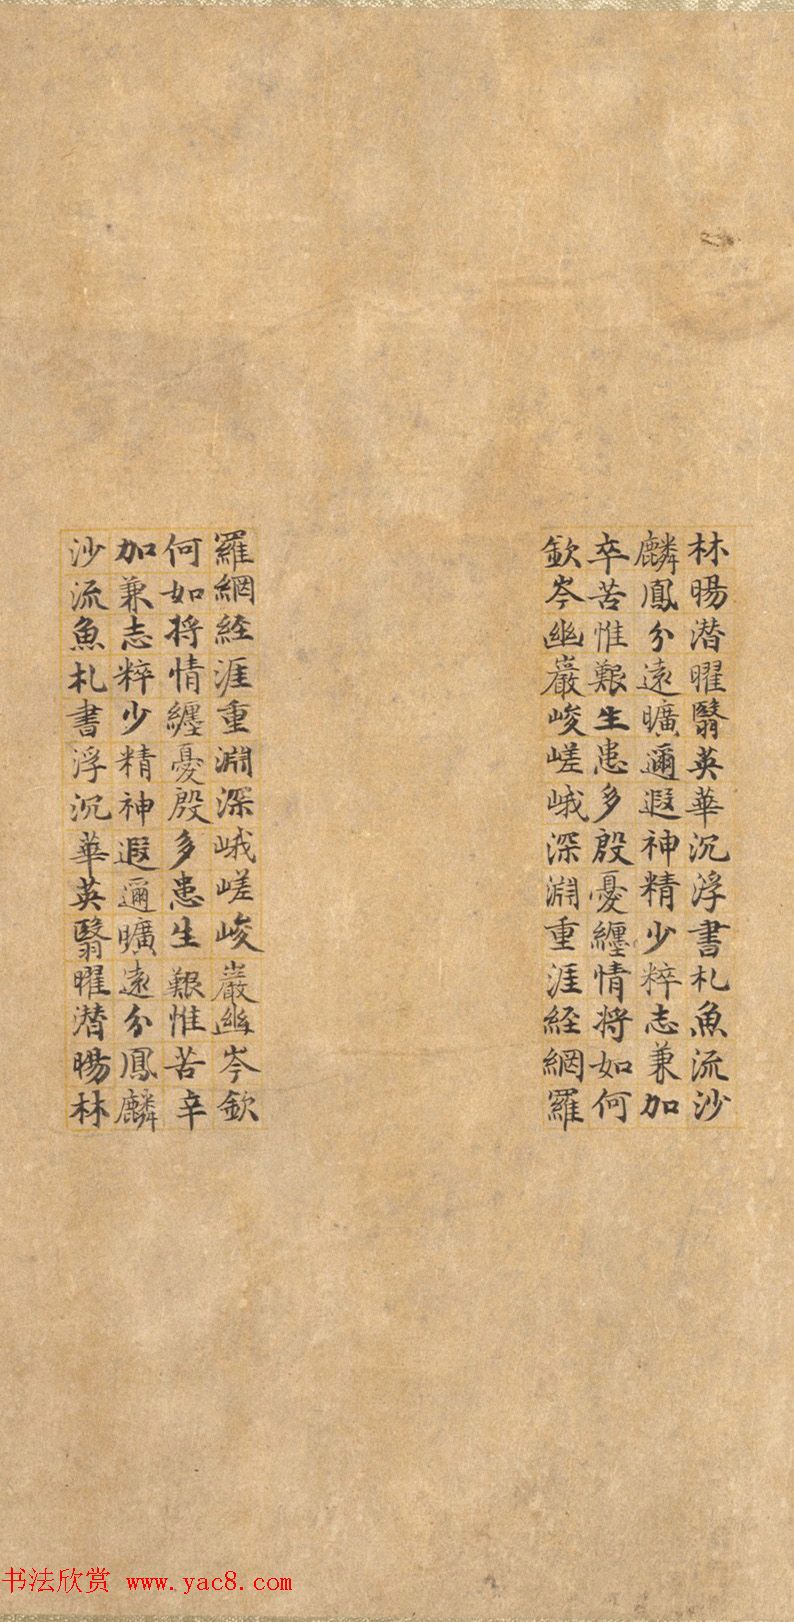 林陽潜曜翳英華沉浮書札魚流沙
麟鳳分遠曠邇遐神精少粹志兼加
卒苦惟艱生患多殷憂纏情將如何
欽岑幽巖峻嵯峨深淵重涯経網羅
羅網経涯重淵深峨嵯峻巖幽岑欽
何如将情纏憂殷多患生艱惟苦辛
加兼志粹少精神遐邇曠遠分鳳麟
沙流魚札書浮沉華英翳曜潜陽林
书法欣赏 www.yac8.com